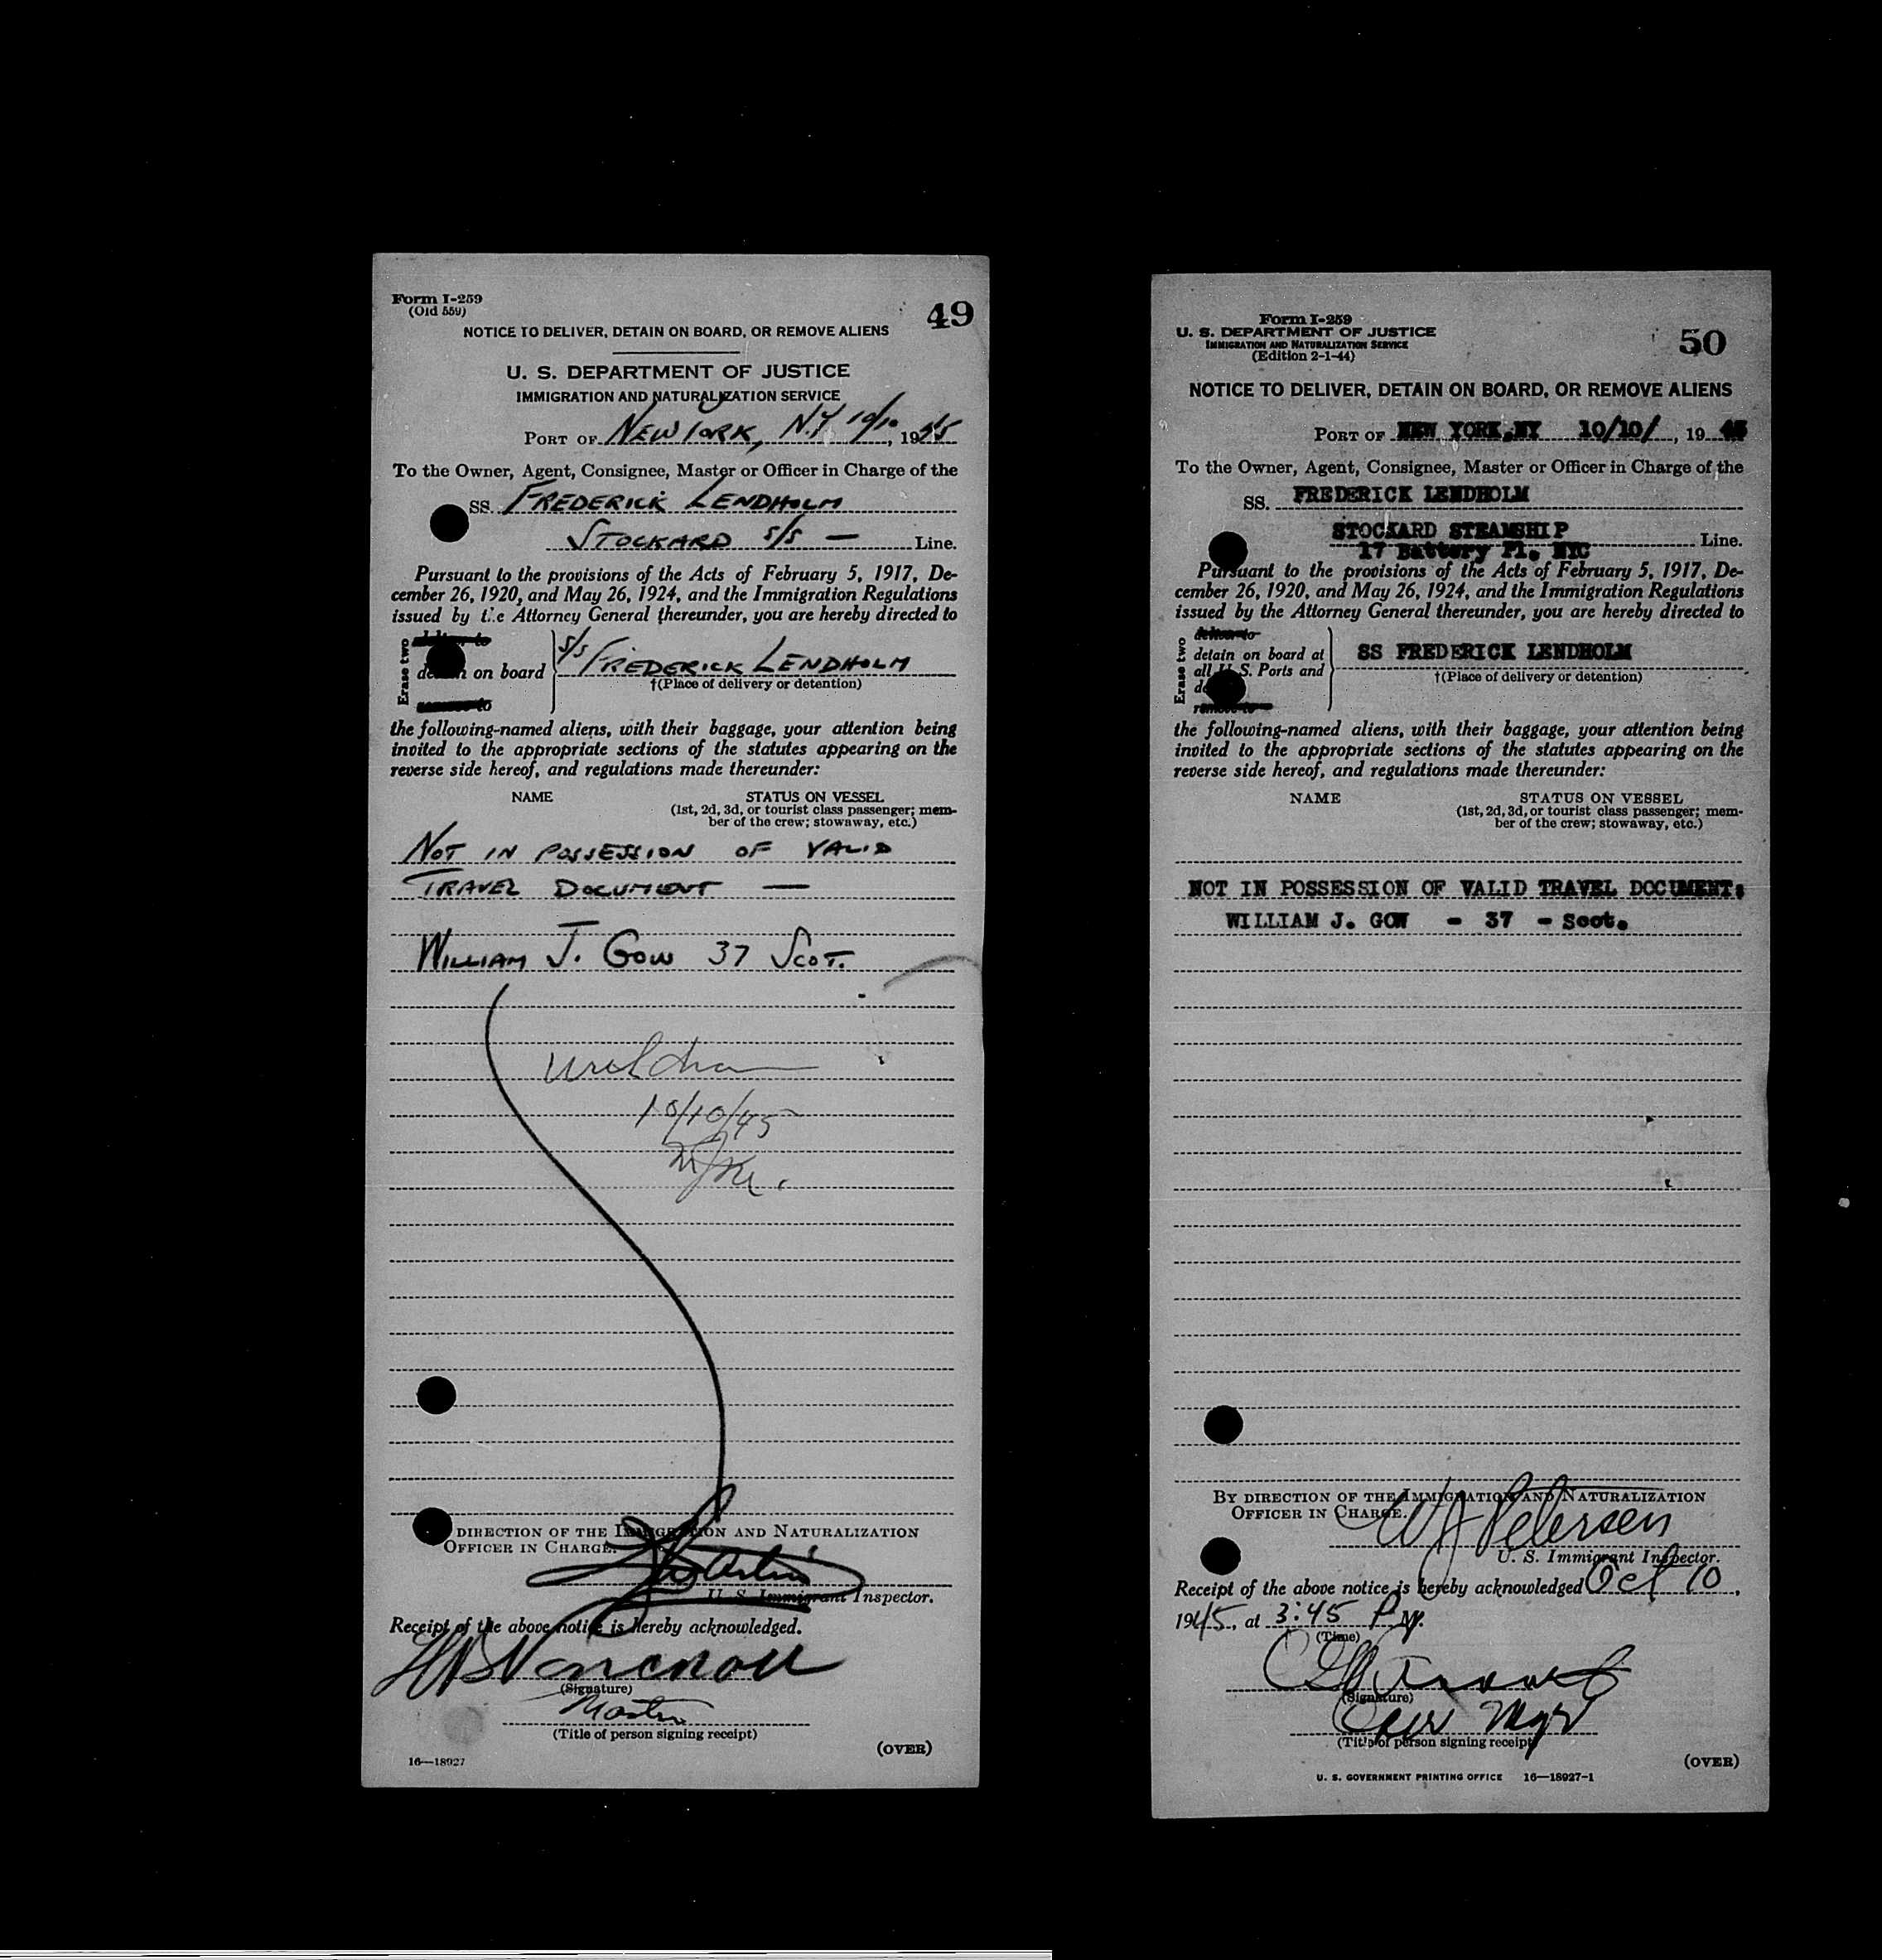 Form I-259
(Old 559)
49
NOTICE TO DELIVER, DETAIN ON BOARD, OR REMOVE ALIENS
U. S. DEPARTMENT OF JUSTICE
IMMIGRATION AND NATURALIZATION SERVICE
PORT OF NEW YORK, N.Y 10/10, 1945
To the Owner, Agent, Consignee, Master or Officer in Charge of the
SS. FREDERICK LENDHOLM
STOCKARD S/S — Line.
Pursuant to the provisions of the Acts of February 5, 1917, De-
cember 26, 1920, and May 26, 1924, and the Immigration Regulations
issued by the Attorney General thereunder, you are hereby directed to
Erase two
deliver to
detain on board
remove to
S/S FREDERICK LENDHOLM
†(Place of delivery or detention)
the following-named aliens, with their baggage, your attention being
invited to the appropriate sections of the statutes appearing on the
reverse side hereof, and regulations made thereunder:
NAME STATUS ON VESSEL
(1st, 2d, 3d, or tourist class passenger; mem-
ber of the crew; stowaway, etc.)
NOT IN POSSESSION OF VALID
TRAVEL DOCUMENT —
WILLIAM J. GOW 37 SCOT.
10/10/45
DIRECTION OF THE IMMIGRATION AND NATURALIZATION
OFFICER IN CHARGE.
U. S. Immigrant Inspector.
Receipt of the above notice is hereby acknowledged.
(Signature)
Master
(Title of person signing receipt)
(OVER)
16—18927
Form I-259
U. S. DEPARTMENT OF JUSTICE
IMMIGRATION AND NATURALIZATION SERVICE
(Edition 2-1-44)
50
NOTICE TO DELIVER, DETAIN ON BOARD, OR REMOVE ALIENS
PORT OF NEW YORK,NY 10/10/, 19 45
To the Owner, Agent, Consignee, Master or Officer in Charge of the
SS. FREDERICK LENDHOLM
STOCKARD STEAMSHIP Line.
17 Battery Pl. NYC
Pursuant to the provisions of the Acts of February 5, 1917, De-
cember 26, 1920, and May 26, 1924, and the Immigration Regulations
issued by the Attorney General thereunder, you are hereby directed to
Erase two
deliver to
detain on board at
all U.S. Ports and
remove to
SS FREDERICK LENDHOLM
†(Place of delivery or detention)
the following-named aliens, with their baggage, your attention being
invited to the appropriate sections of the statutes appearing on the
reverse side hereof, and regulations made thereunder:
NAME STATUS ON VESSEL
(1st, 2d, 3d, or tourist class passenger; mem-
ber of the crew; stowaway, etc.)
NOT IN POSSESSION OF VALID TRAVEL DOCUMENT:
WILLIAM J. GOW - 37 - Scot.
BY DIRECTION OF THE IMMIGRATION AND NATURALIZATION
OFFICER IN CHARGE.
W J Petersen
U. S. Immigrant Inspector.
Receipt of the above notice is hereby acknowledged Oct 10,
1945, at 3:45 P M.
(Time)
(Signature)
Oper Mgr
(Title of person signing receipt)
(OVER)
U. S. GOVERNMENT PRINTING OFFICE 16—18927-1